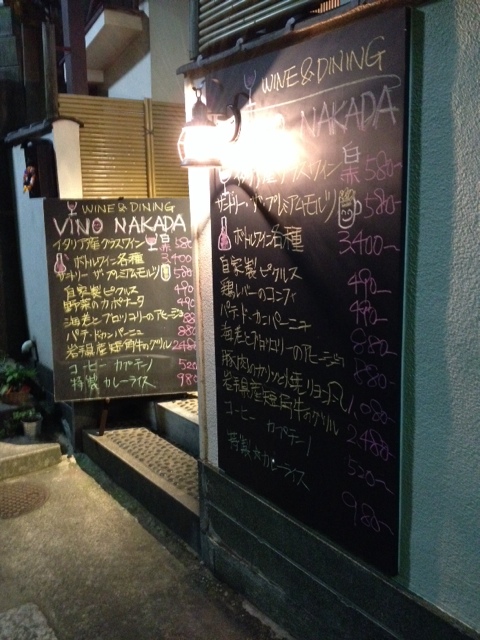 WINE & DINING
VINO NAKADA
イタリア産グラスワイン 白 赤 580
ボトルワイン各種 3,400
サントリー ザ・プレミアムモルツ 580
自家製ピクルス 490
野菜のカポナータ 490
海老とブロッコリーのアヒージョ 880
パテ・ド・カンパーニュ 880
岩手県産短角牛のグリル 2480
コーヒー カプチーノ 520
特製カレーライス 980
WINE & DINING
NAKADA
イタリア産グラスワイン 白 赤 580-
サントリー ザ・プレミアムモルツ 580-
ボトルワイン各種 3,400-
自家製ピクルス 490-
鶏レバーのコンフィ 490-
パテ・ド・カンパーニュ 880-
海老とブロッコリーのアヒージョ 880-
豚肉のカリッと焼リヨン風 1,080-
岩手県産短角牛のグリル 2480-
コーヒー カプチーノ 520-
特製カレーライス 980-